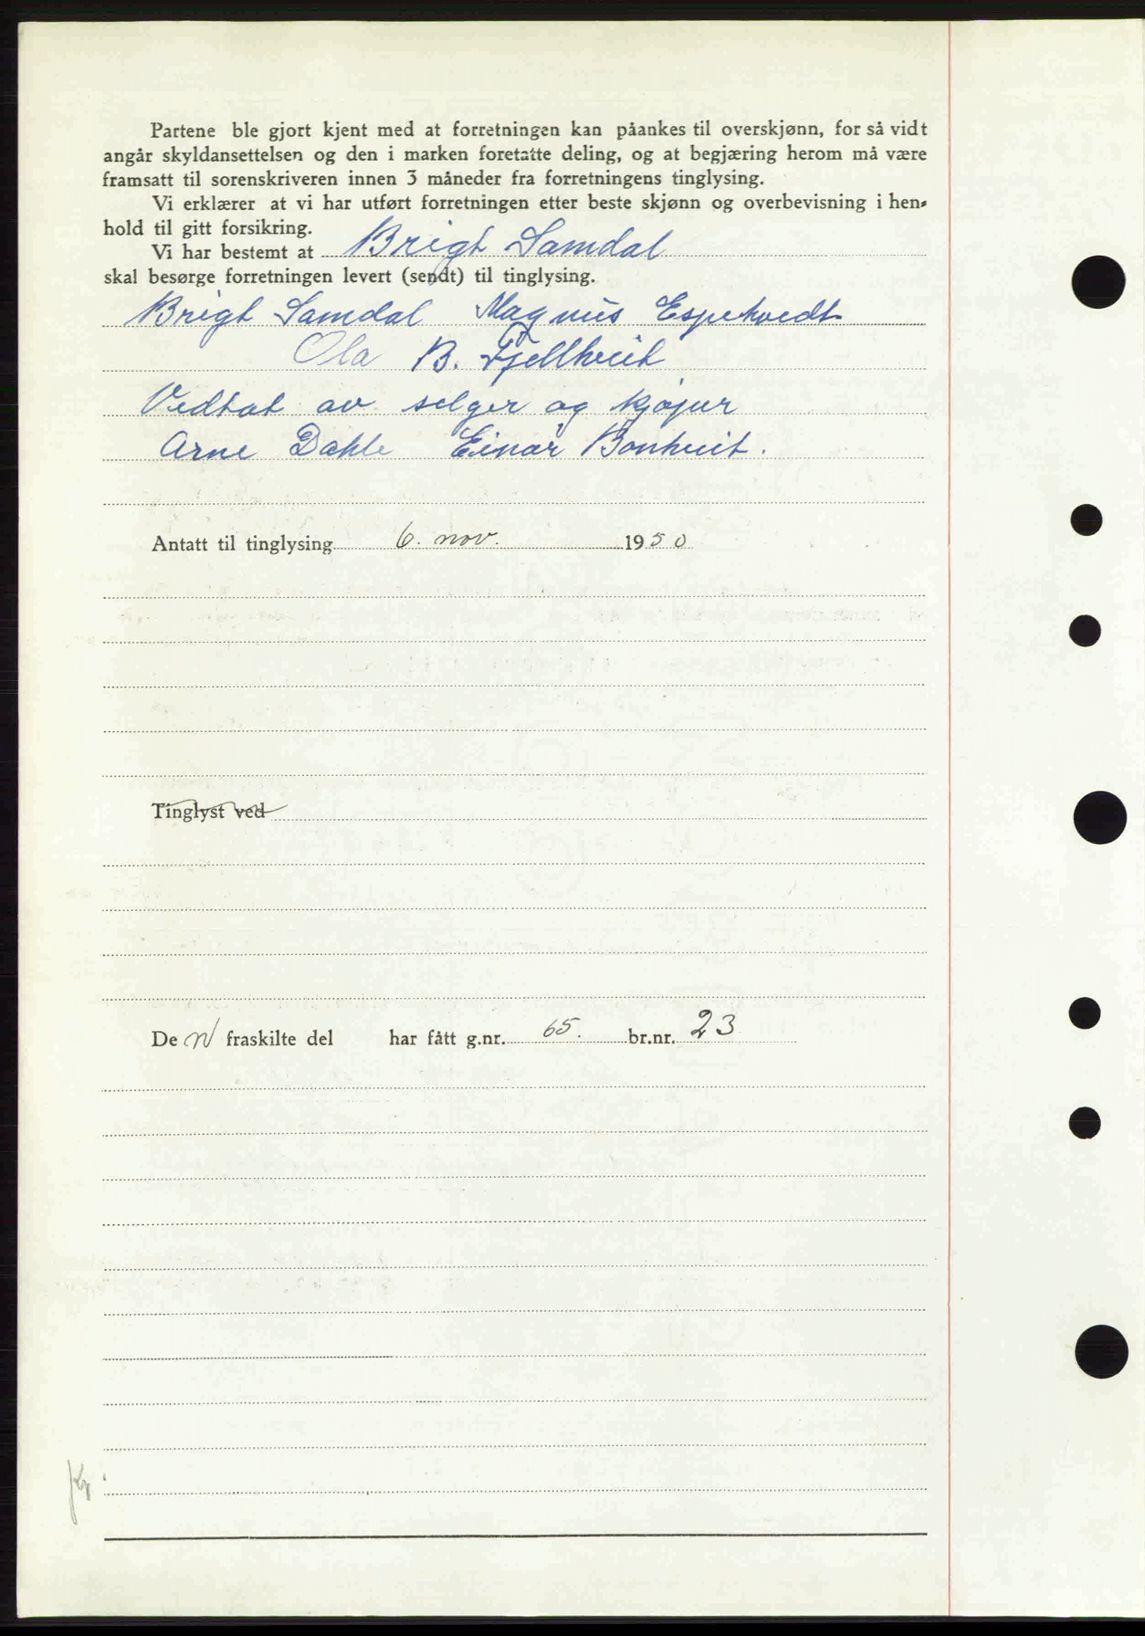 Partene ble gjort kjent med at forretningen kan påankes til overskjønn, for så vidt
angår skyldansettelsen og den i marken foretatte deling, og at begjæring herom må være
framsatt til sorenskriveren innen 3 måneder fra forretningens tinglysing.
Vi erklærer at vi har utført forretningen etter beste skjønn og overbevisning i hen-
hold til gitt forsikring.
Vi har bestemt at Brigt Samdal
skal besørge forretningen levert (sendt) til tinglysing.
Brigt Samdal Magnus Espehvedt
Ola B. Fjellhvit
Vedtat av selger og kjøper
Arne Dahle Einar Bonhvit.
Antatt til tinglysing 6. nov. 1950
Tinglyst ved
De n fraskilte del har fått g.nr. 65. br.nr. 23